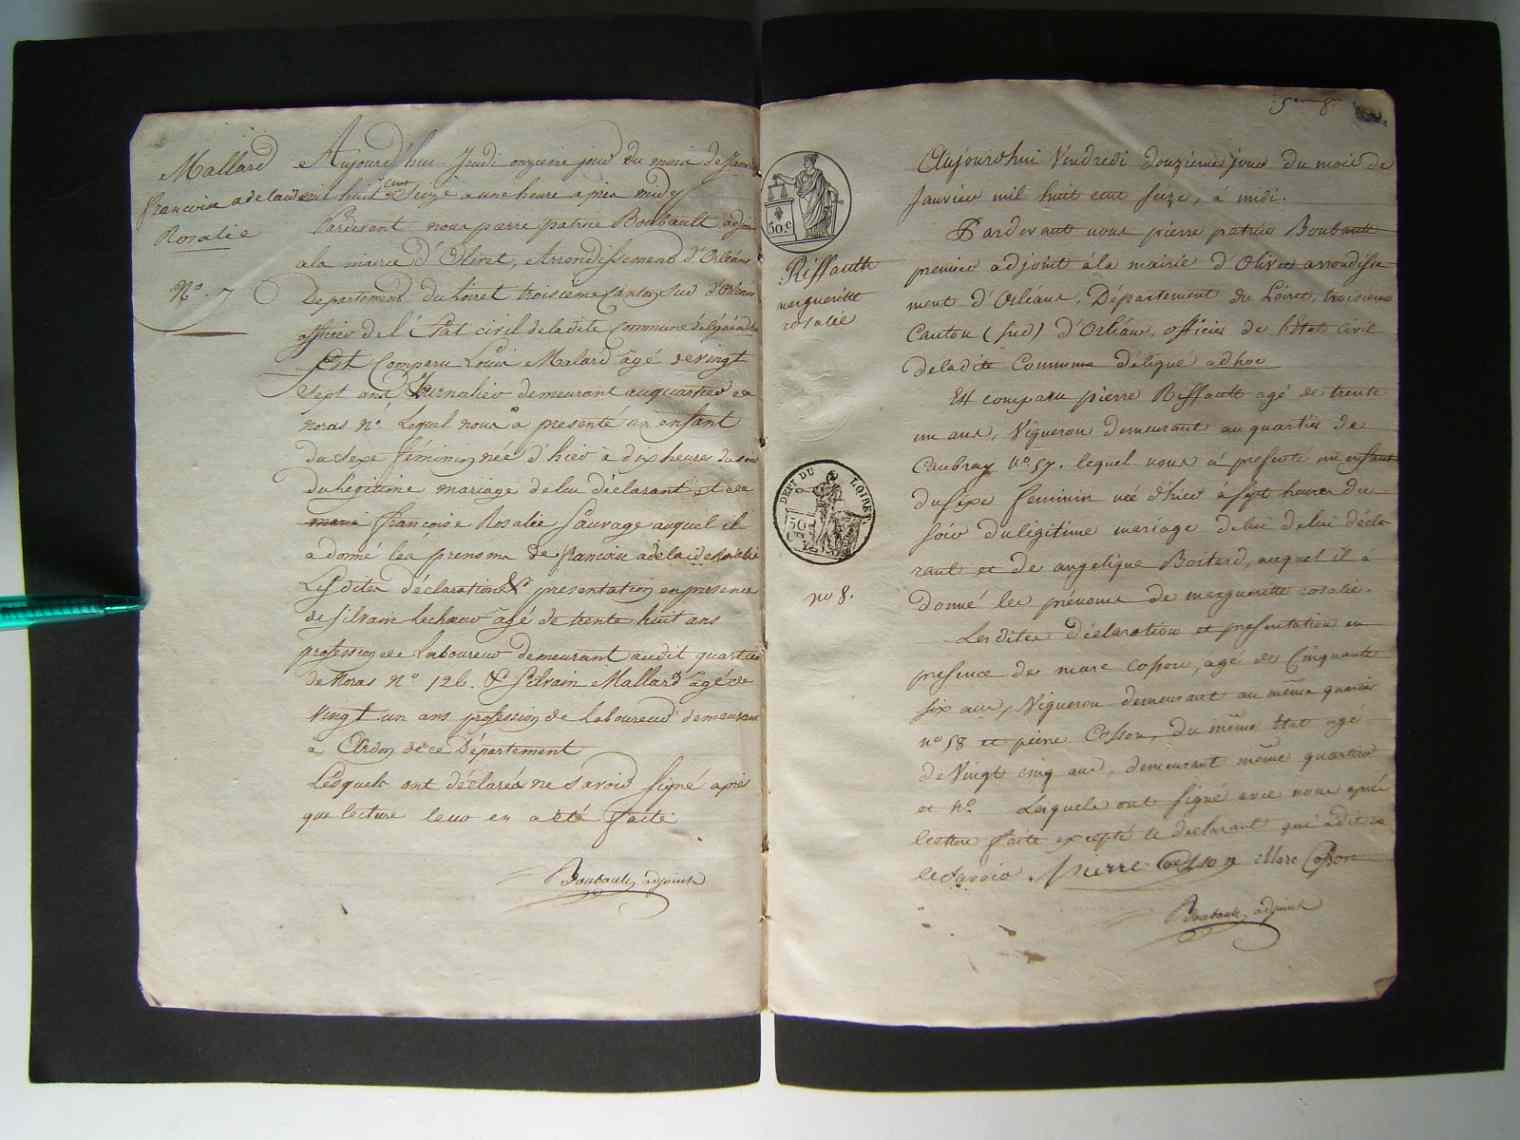 Mallard
francoise adelaide
Rosalie
N° 7
Aujourd'hui Jeudi onzieme jour du mois de Janv
mil huit cent Seize a une heure apres midy
Pardevant nous pierre patrice Boubault adjoin
a la mairie d'Olivet, Arrondissement d'Orléans
Departement du Loiret troisieme Canton Sud d'Orléans
officier de l'Etat civil de ladite Commune délégué
Est Comparu Louis Malard âgé de vingt
Sept ans Journalier demeurant au quartier de
noras n° Lequel nous a presenté un enfant
du Sexe féminin née d'hier a dix heures du soir
du légitime mariage de lui déclarant et de
francoise Rosalie Sauvage auquel il
a donné les prenoms de francoise adelaide Rosalie
Lesdites déclaration & presentation en presence
de Silvain Lechauv âgé de trente huit ans
profession de Laboureur demeurant audit quartier
de Noras N° 126. & Silvain Mallard âgé de
Vingt un ans profession de Laboureur demeurant
a Ardon de ce Département
Lesquels ont déclarés ne savoir signé apres
que lecture leur en a été faite
Boubault adjoint
50.c
Riffault
merguerite
rosalie
DEPT DU LOIRET.
50
no 8.
8
Aujourdhui Vendredi douzieme jour du mois de
Janvier mil huit cent seize, à midi.
Pardevant nous pierre patrice Boubault
premier adjoint à la mairie d'Olivet arrondisse
ment d'Orléans, Département du Loiret, troisieme
Canton (sud) d'Orléans, officier de l'état civil
de ladite Commune délégué adhoc
Est comparu pierre Riffault agé de trente
un ans, Vigneron demeurant au quartier de
Caubray n° 57. lequel nous a presenté un enfant
du sexe feminin née d'hier à sept heures du
soir du légitime mariage de lui de lui décla
rant et de angelique Boitard, auquel il a
donné les prénoms de merguerite rosalie.
Lesdites déclaration et presentation en
presence de marc cosson, agé de Cinquante
six ans, Vigneron demeurant au même quartier
n° 58 et pierre Cosson, du même état agé
de Vingt cinq ans, demeurant même quartier
et n°. Lesquels ont signé avec nous après
lecture faite excepté le declarant qui a dit ne
le savoir. Pierre Cosson Marc Cosson
Boubault, adjoint